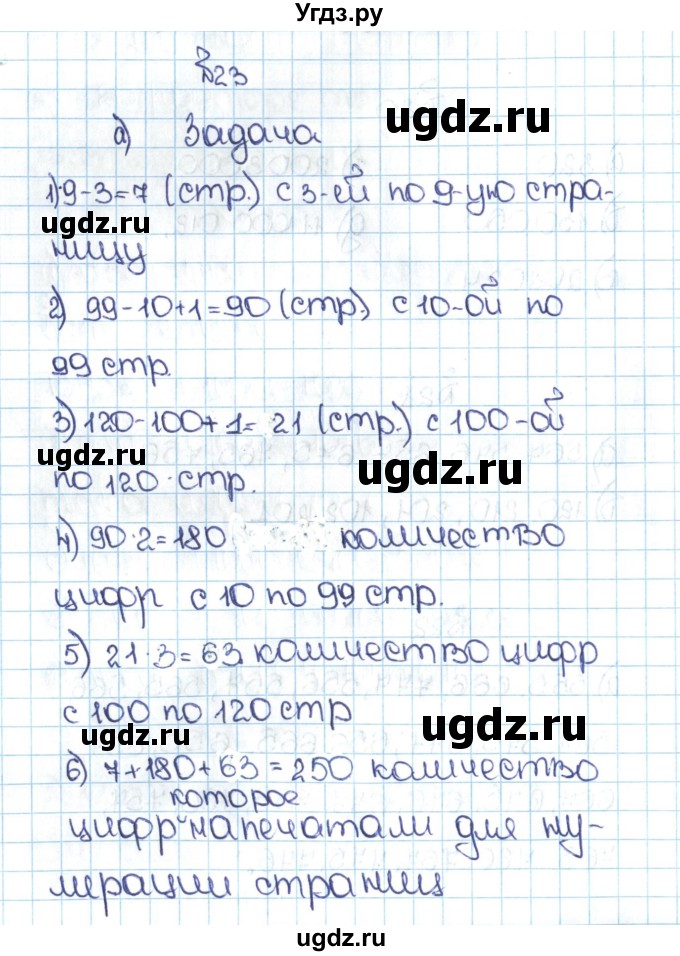 Угдз.ру
№23
а) Задача
ugdz.ru
1) 9-3=7 (стр.) с 3-ей по 9-ую стра-
ugdz.ru
ницу
2) 99-10+1=90 (стр.) с 10-ой по
99 стр.
3) 120-100+1= 21 (стр.) с 100-ой
ugdz.ru
ugdz.ru
по 120 стр.
4) 90·2=180 количество
цифр с 10 по 99 стр.
5) 21·3=63 количество цифр
с 100 по 120 стр
ugdz.ru
ugdz.ru
6) 7+180+63=250 количество
которое
цифр напечатали для ну-
мерации страниц
ugdz.ru